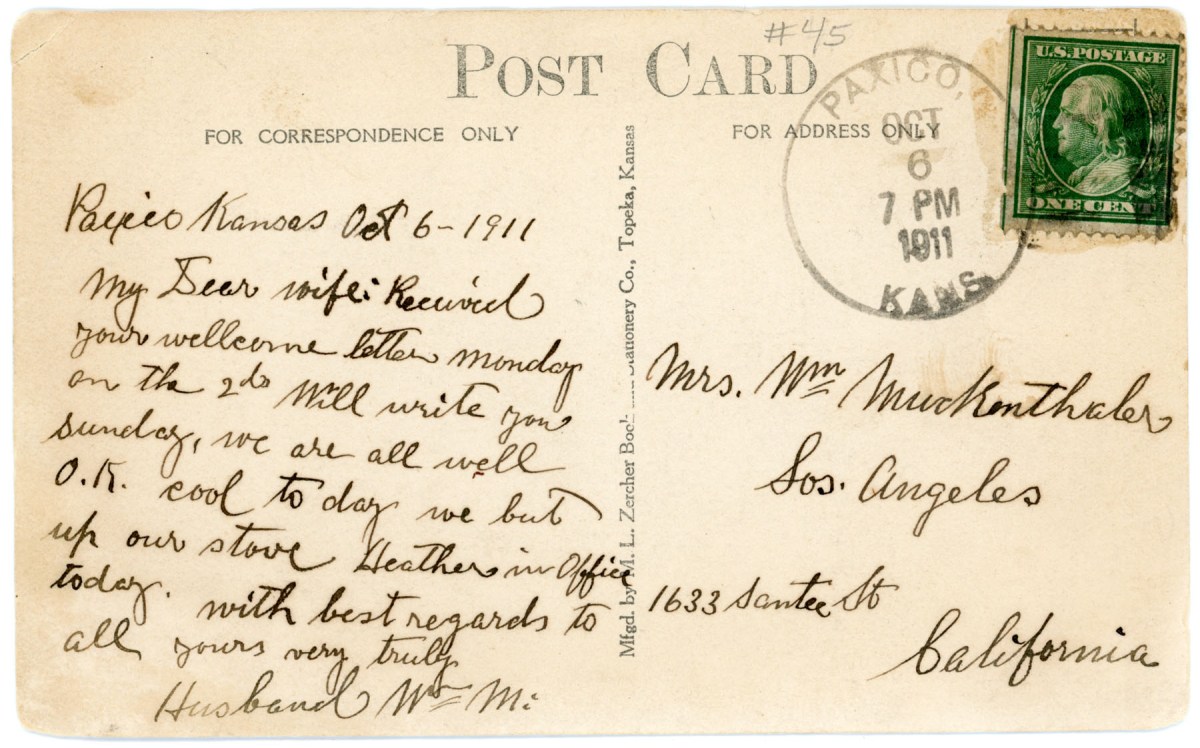 #45
POST CARD
FOR CORRESPONDENCE ONLY
FOR ADDRESS ONLY
PAXICO,
OCT
6
7 PM
1911
KANS.
U.S. POSTAGE
ONE CENT
Paxico Kansas Oct 6-1911
My Dear wife: Received
your wellcome letter monday
on the 2ds Will write you
sunday, we are all well
O.K. cool to day we but
up our stove Heather in Office
today. with best regards to
all yours very truly
Husband Wm M:
Mfgd. by M. L. Zercher Book Stationery Co., Topeka, Kansas
Mrs. Wm Muckenthaler
Los. Angeles
1633 Santee St
California